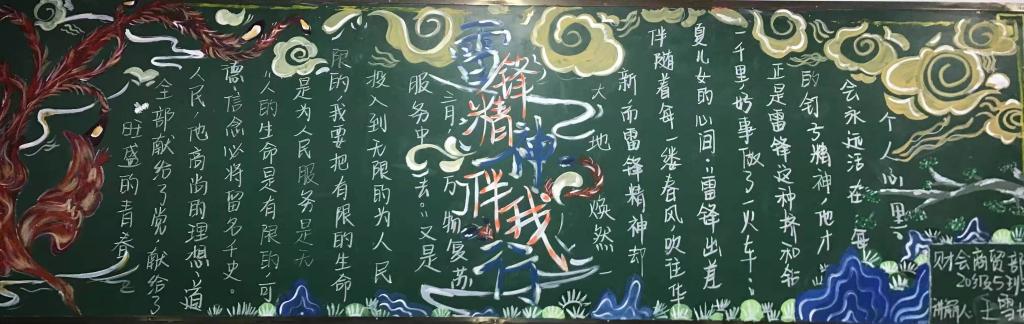 雷锋精神
伴我行
旺盛的青春
全部献给了党,献给了
人民,他高尚的理想、道
德、信念必将留名千史。
“人的生命是有限的,可
是为人民服务是无
限的,我要把有限的生命
投入到无限的为人民
服务中去。”又是
三月,万物复苏
大地焕然一
新,而雷锋精神却
伴随着每一缕春风,吹在华
夏儿女的心间:“雷锋出差
一千里,好事做了一火车;
正是雷锋这种挤和钻
的钉子精神,他才
会永远活在每
个人心里。
财会商贸部